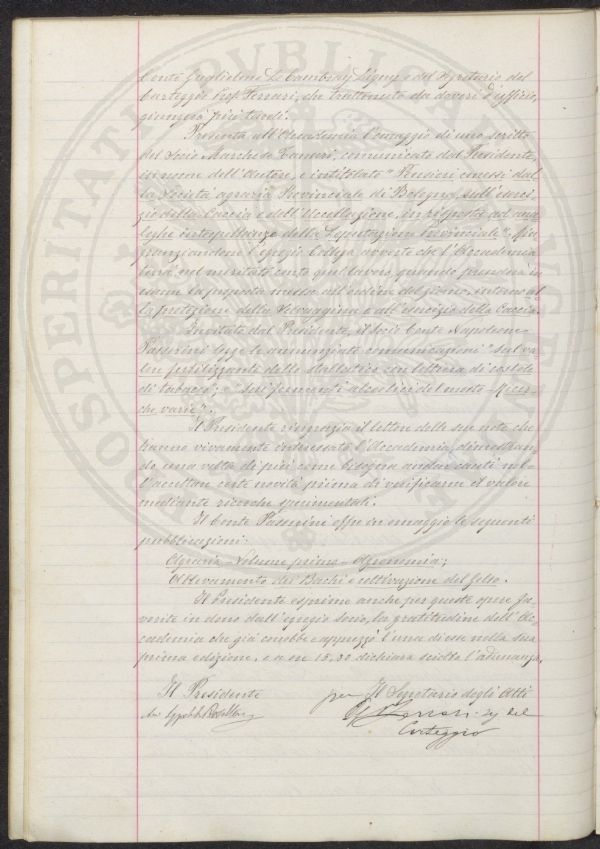 Conte Guglielmo De Cambray Digny e del Segretario del
Carteggio Prof. Ferrari, che trattenuto da doveri d'ufficio,
giungerà più tardi.
Presenta all'Accademia l'omaggio di uno scritto
del Socio Marchese Tanari, comunicato dal Presidente,
in nome dell'Autore, e intitolato "Pensieri emessi dal
la Società agraria Provinciale di Bologna, sull'eserci
zio della Caccia e dell'Uccellazione, in risposta ad ana
loghe interpellanze della Deputazione Provinciale". Rin
graziandone l'egregio Collega avverte che l'Accademia
terrà nel meritato conto quel lavoro, quando prenderà in
esame la proposta messa all'ordine del giorno, intorno al
la protezione della Selvaggina e all'esercizio della Caccia.
Invitato dal Presidente, il Socio Conte Napoleone
Passerini legge le annunziate comunicazioni "sul va
lore fertilizzante dello stallatico con lettiera di costole
di tabacco"; "sui fermenti alcoolici del mosto – Ricer-
che varie".
Il Presidente ringrazia il lettore delle sue note che
hanno vivamente interessato l'Accademia, dimostran
do una volta di più come bisogna andar cauti nel
l'accettare certe novità prima di verificarne il valore
mediante ricerche sperimentali.
Il Conte Passerini offre in omaggio le seguenti
pubblicazioni:
Agraria – Volume primo – Agronomia;
Allevamento dei Bachi e coltivazione del gelso.
Il Presidente esprime anche per queste opere fa
vorite in dono dall'egregio Socio, la gratitudine dell'Ac
cademia che già conobbe e apprezzò l'una di esse nella sua
prima edizione, e a ore 15,30 dichiara sciolta l'adunanza.
Il Presidente per Il Segretario degli Atti
Ferrari. Seg del
Carteggio
PROSPERITATI PVBLICAE